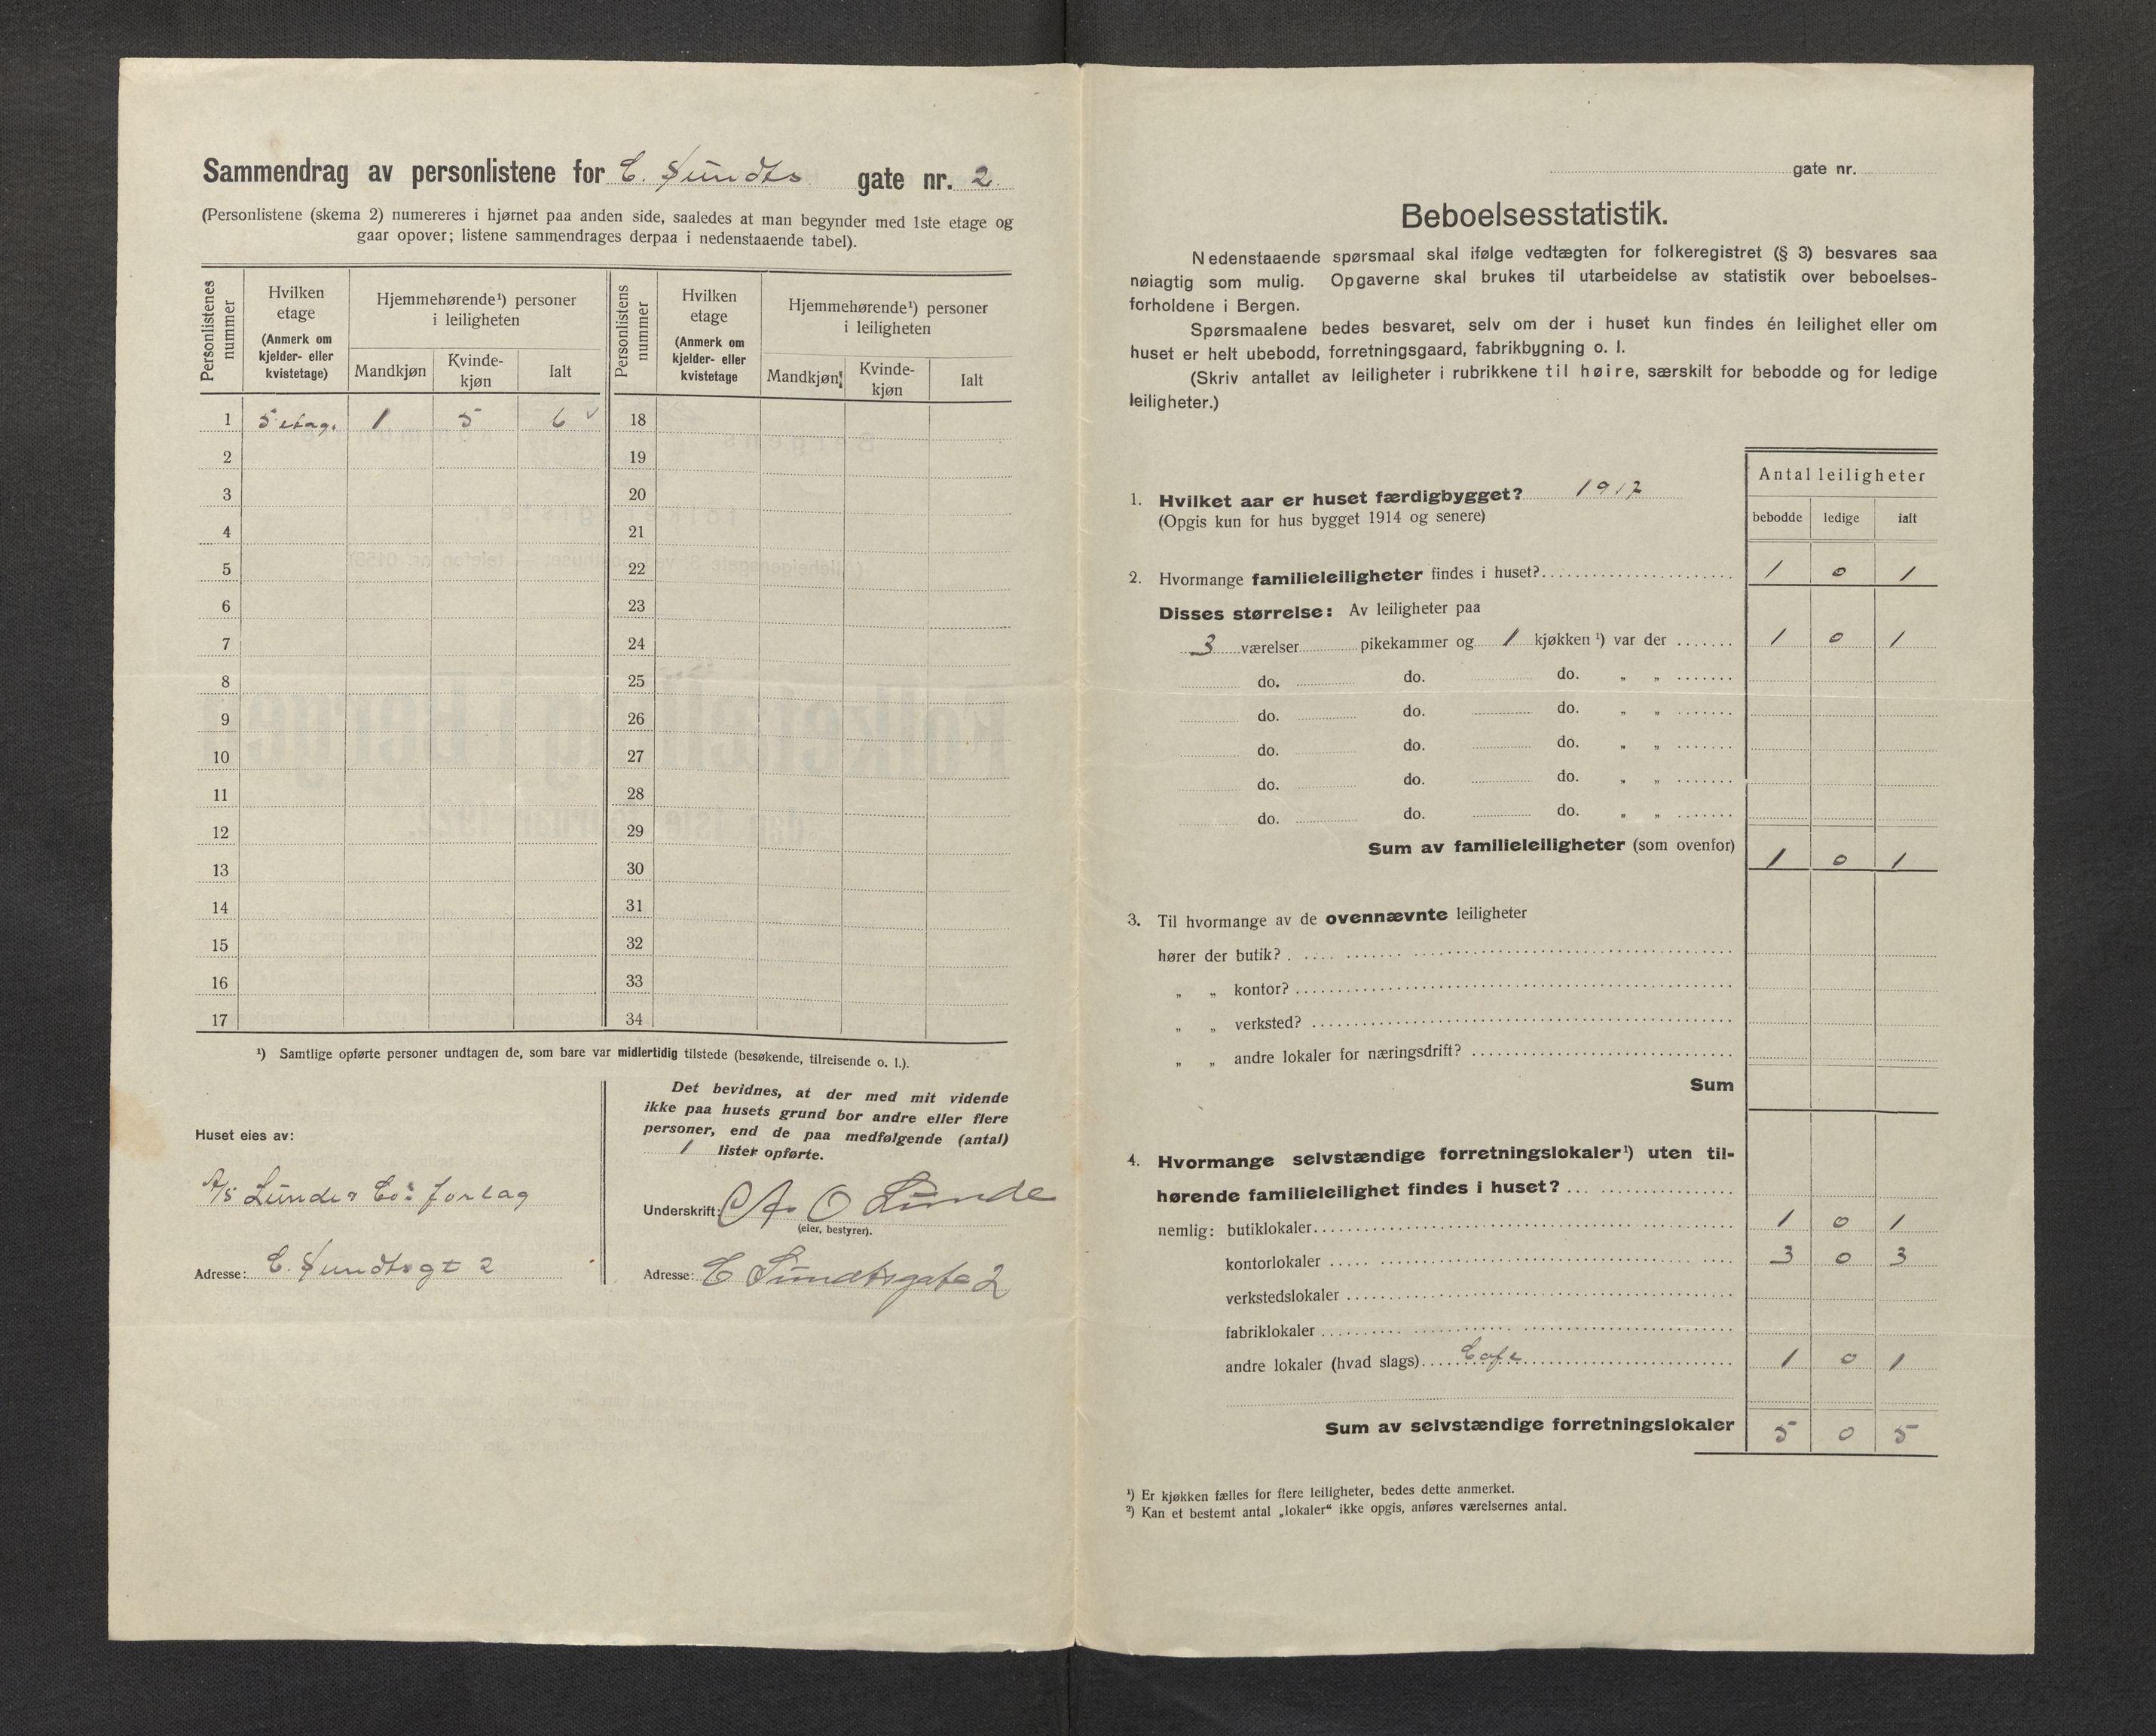 Sammendrag av personlistene for C. Sundts gate nr. 2.
(Personlistene (skema 2) numereres i hjørnet paa anden side, saaledes at man begynder med 1ste etage og
gaar opover; listene sammendrages derpaa i nedenstaaende tabel).
Personlistenes nummer
Hvilken etage (Anmerk om kjelder- eller kvistetage)
Hjemmehørende¹) personer i leiligheten
Mandkjøn Kvinde-kjøn Ialt
Personlistens nummer
Hvilken etage (Anmerk om kjelder- eller kvistetage
Hjemmehørende¹) personer i leiligheten
Mandkjøn Kvinde-kjøn Ialt
1 5 etag. 1 5 6 ✓ 18
2 19
3 20
4 21
5 22
6 23
7 24
8 25
9 26
10 27
11 28
12 29
13 30
14 31
15 32
16 33
17 34
¹) Samtlige opførte personer undtagen de, som bare var midlertidig tilstede (besøkende, tilreisende o. l.).
Huset eies av:
A/S Lunde & Co's forlag
Adresse: C. Sundtsgt 2
Det bevidnes, at der med mit vidende
ikke paa husets grund bor andre eller flere
personer, end de paa medfølgende (antal)
1 lister opførte.
Underskrift: A. O Lunde
(eier, bestyrer).
Adresse: C Sundtsgate 2
gate nr.
Beboelsesstatistik.
Nedenstaaende spørsmaal skal ifølge vedtægten for folkeregistret (§ 3) besvares saa
nøiagtig som mulig. Opgaverne skal brukes til utarbeidelse av statistik over beboelses-
forholdene i Bergen.
Spørsmaalene bedes besvaret, selv om der i huset kun findes én leilighet eller om
huset er helt ubebodd, forretningsgaard, fabrikbygning o. l.
(Skriv antallet av leiligheter i rubrikkene til høire, særskilt for bebodde og for ledige
leiligheter.)
Antal leiligheter
bebodde ledige ialt
1. Hvilket aar er huset færdigbygget? 1917
(Opgis kun for hus bygget 1914 og senere)
2. Hvormange familieleiligheter findes i huset? 1 0 1
Disses størrelse: Av leiligheter paa
3 værelser pikekammer og 1 kjøkken ¹) var der 1 0 1
do. do. do. „ „
do. do. do. „ „
do. do. do. „ „
do. do. do. „ „
do. do. do. „ „
Sum av familieleiligheter (som ovenfor) 1 0 1
3. Til hvormange av de ovennævnte leiligheter
hører der butik?
„ „ kontor?
„ „ verksted?
„ „ andre lokaler for næringsdrift?
Sum
4. Hvormange selvstændige forretningslokaler¹) uten til-
hørende familieleilighet findes i huset?
nemlig: butiklokaler 1 0 1
kontorlokaler 3 0 3
verkstedslokaler
fabriklokaler
andre lokaler (hvad slags) Cafe 1 0 1
Sum av selvstændige forretningslokaler 5 0 5
¹) Er kjøkken fælles for flere leiligheter, bedes dette anmerket.
²) Kan et bestemt antal „lokaler“ ikke opgis, anføres værelsernes antal.